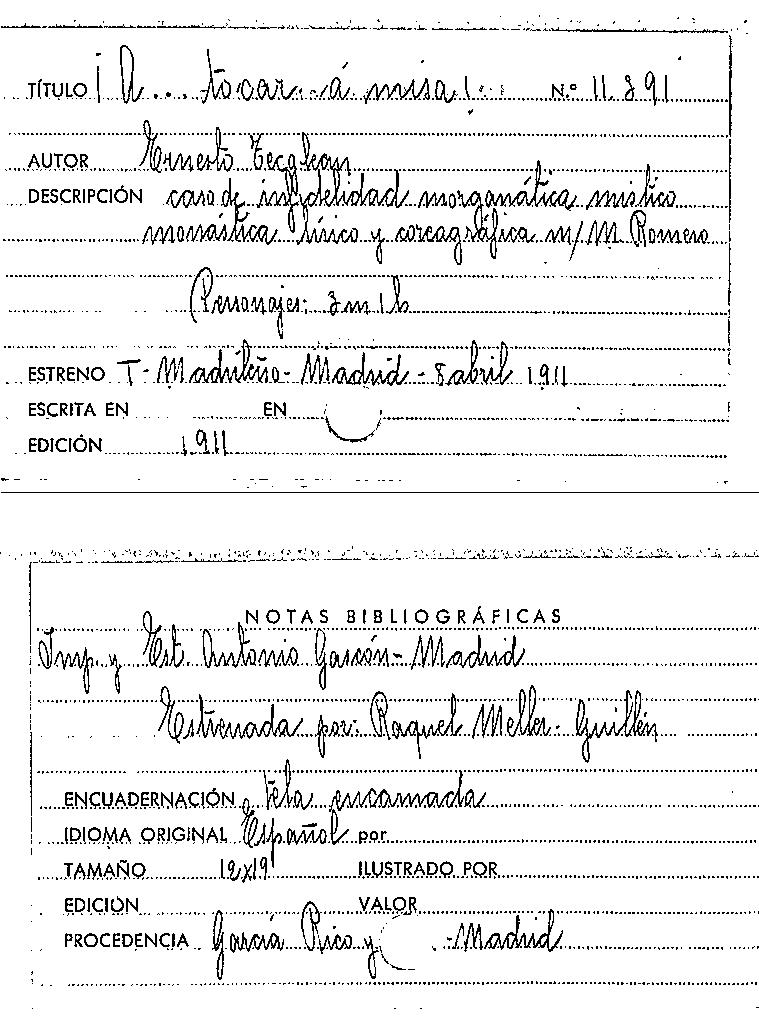 TÍTULO ¡A... tocar á misa! N.º 11.891
AUTOR Ernesto Tecglean
DESCRIPCIÓN caso de infidelidad morganática mistico
monástica lírico y coreagráfica m/ M. Romero
Personajes: 3 m 1 h
ESTRENO T- Madrileño- Madrid - 8 abril 1911
ESCRITA EN EN
EDICIÓN 1911
NOTAS BIBLIOGRÁFICAS
Imp. y Est. Antonio Gascón- Madrid
Estrenada por: Raquel Meller- Guillén
ENCUADERNACIÓN Tela encarnada
IDIOMA ORIGINAL Español por
TAMAÑO 12x19 ILUSTRADO POR
EDICIÓN VALOR
PROCEDENCIA García Rico y - Madrid